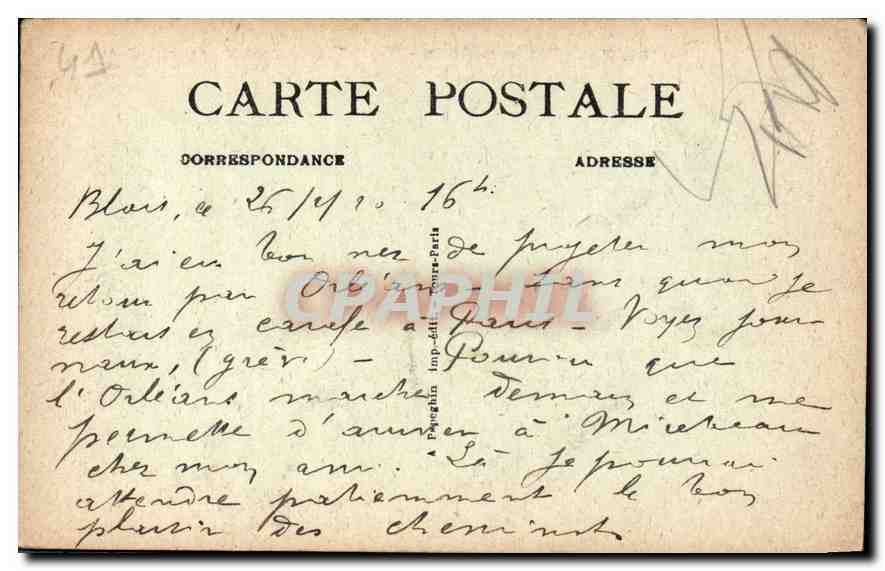 41
CARTE POSTALE
CORRESPONDANCE ADRESSE
Blois, ce 26/2/20 16h
J'ai eu bon nez de projeter mon
retour par Orléans - sans quoi je
restais en carafe à Paris - Voyez jour
naux, (grève) - Pourvu que
l'Orléans marche demain et me
permette d'arriver à Mirebeau
chez mon ami. Là je pourrai
attendre patiemment le bon
plaisir des cheminots
A. Papeghin Imp.-édit. Tours-Paris
CPAPHIL